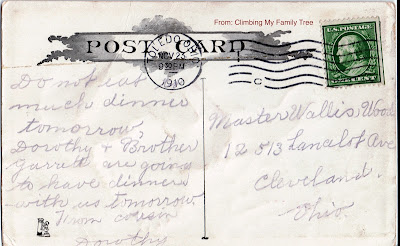 From: Climbing My Family Tree
POST CARD
TOLEDO, OHIO
NOV 23
1910
C
U.S. POSTAGE
CENT
Do not eat
much dinner
tomorrow,
Dorothy & Brother
Garrett are going
to have dinners
with us tomorrow
From cousin
Dorothy
Master Wallis Wood
12813 Lancelot Ave
Cleveland.
Ohio.